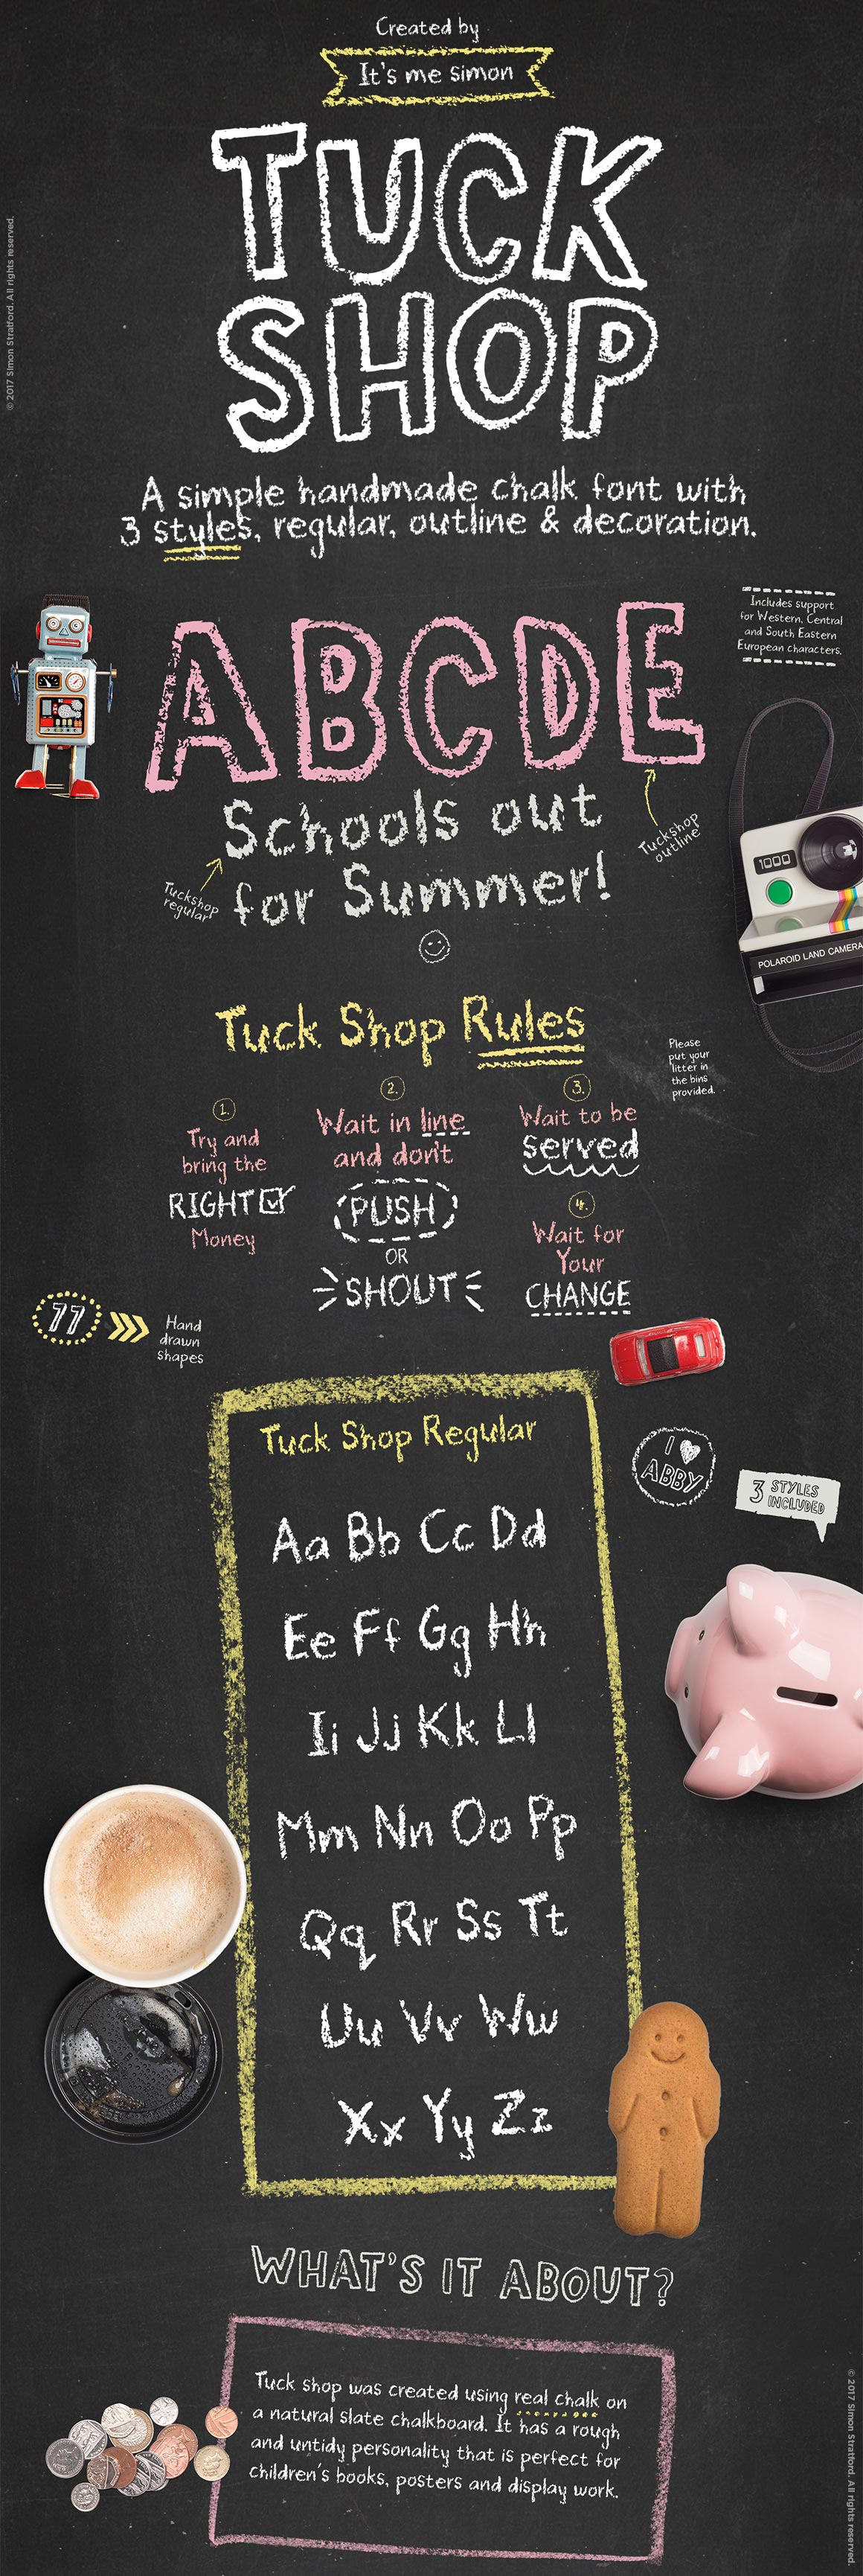 Created by
It's me simon
TUCK
SHOP
© 2017 Simon Stratford. All rights reserved.
A simple handmade chalk font with
3 styles, regular, outline & decoration.
ABCDE
Includes support
for Western, Central
and South Eastern
European characters.
Schools out
for Summer!
Tuckshop
outline
Tuckshop
regular
1000
POLAROID LAND CAMERA
Tuck Shop Rules
Please
put your
litter in
the bins
provided.
1.
Try and
bring the
RIGHT
Money
2.
Wait in line
and don't
PUSH
OR
SHOUT
3.
Wait to be
served
4.
Wait for
Your
CHANGE
77
Hand
drawn
shapes
Tuck Shop Regular
I
ABBY
3 STYLES
INCLUDED
Aa Bb Cc Dd
Ee Ff Gg Hh
Ii Jj Kk Ll
Mm Nn Oo Pp
Qq Rr Ss Tt
Uu Vv Ww
Xx Yy Zz
WHAT'S IT ABOUT?
Tuck shop was created using real chalk on
a natural slate chalkboard. It has a rough
and untidy personality that is perfect for
children's books, posters and display work.
© 2017 Simon Stratford. All rights reserved.